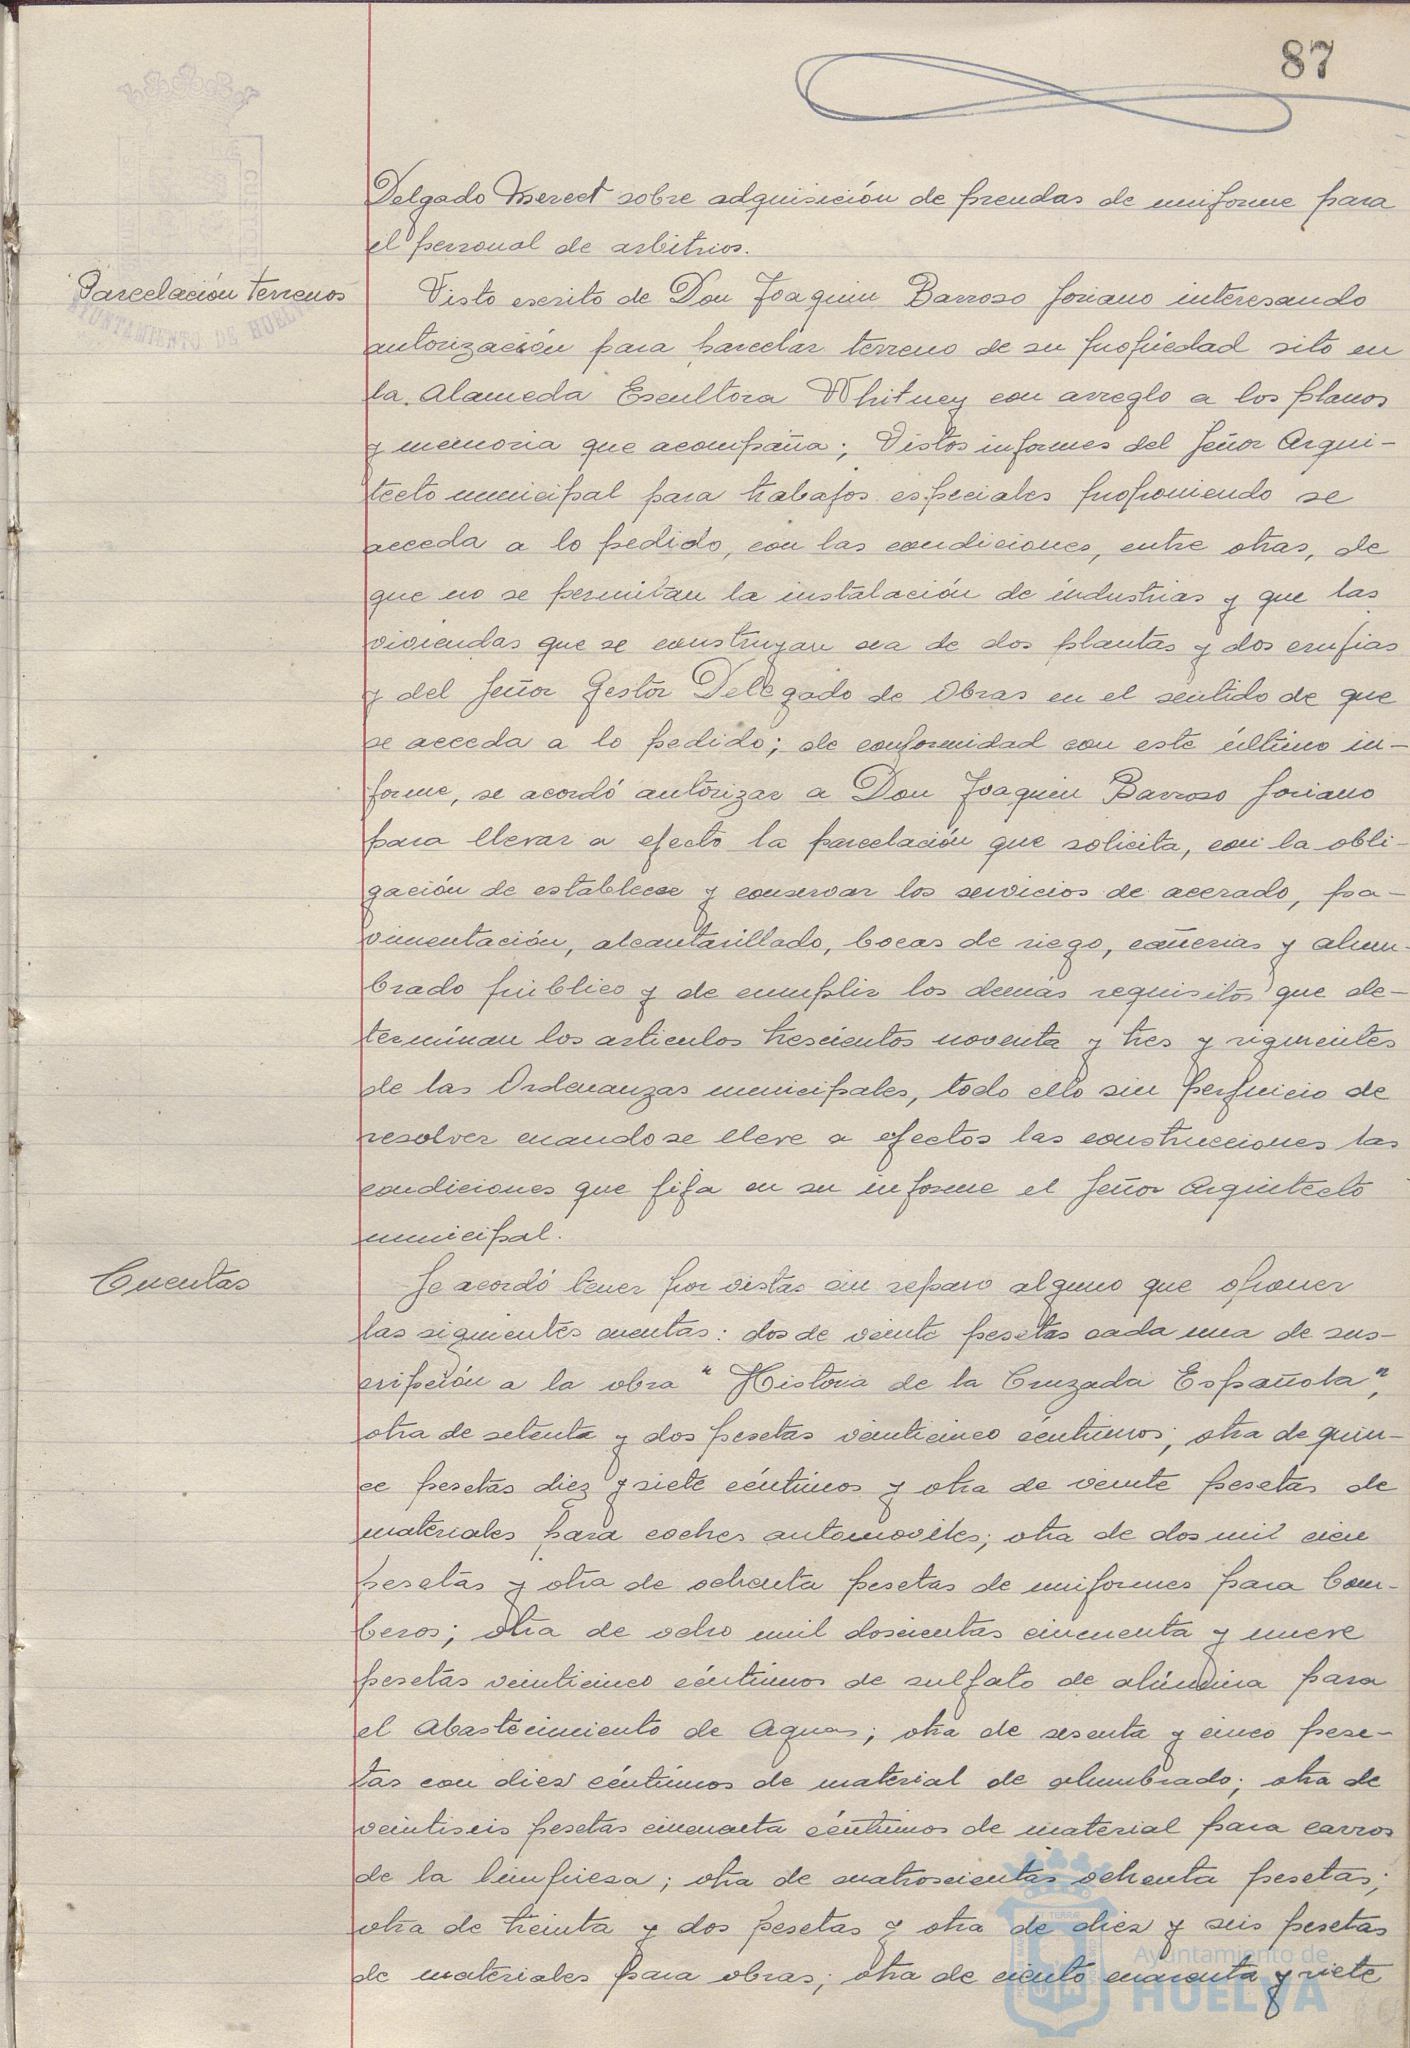 87
Delgado Merect sobre adquisición de prendas de uniforme para
el personal de arbitrios.
Parcelación terrenos
AYUNTAMIENTO DE HUELVA
Visto escrito de Don Joaquin Barroso Soriano interesando
autorización para parcelar terreno de su propiedad sito en
la Alameda Escultora Whitney con arreglo a los planos
y memoria que acompaña; Vistos informes del Señor Arqui-
tecto municipal para trabajos especiales proponiendo se
acceda a lo pedido, con las condiciones, entre otras, de
que no se permitan la instalación de industrias y que las
viviendas que se construyan sea de dos plantas y dos crujias
y del Señor Gestor Delegado de Obras en el sentido de que
se acceda a lo pedido; de conformidad con este último in-
forme, se acordó autorizar a Don Joaquin Barroso Soriano
para llevar a efecto la parcelación que solicita, con la obli-
gación de establecer y conservar los servicios de acerado, pa-
vimentación, alcantarillado, bocas de riego, cañerias y alum-
brado público y de cumplir los demás requisitos que de-
terminan los articulos trescientos noventa y tres y siguientes
de las Ordenanzas municipales, todo ello sin perjuicio de
resolver cuando se lleve a efectos las construcciones las
condiciones que fija en su informe el Señor Arquitecto
municipal.
Cuentas
Se acordó tener por vistas sin reparo alguno que oponer
las siguientes cuentas: dos de veinte pesetas cada una de sus-
cripción a la obra "Historia de la Cruzada Española",
otra de setenta y dos pesetas veinticinco céntimos; otra de quin-
ce pesetas diez y siete céntimos y otra de veinte pesetas de
materiales para coches automoviles; otra de dos mil cien
pesetas y otra de ochenta pesetas de uniformes para bom-
beros; otra de ocho mil doscientas cincuenta y nueve
pesetas veinticinco céntimos de sulfato de alúmina para
el Abastecimiento de Aguas; otra de sesenta y cinco pese-
tas con diez céntimos de material de alumbrado; otra de
veintiseis pesetas cincuenta céntimos de material para carros
de la limpieza; otra de cuatroscientas ochenta pesetas;
otra de treinta y dos pesetas y otra de diez y seis pesetas
de materiales para obras; otra de ciento cuarenta y siete
Ayuntamiento de
HUELVA